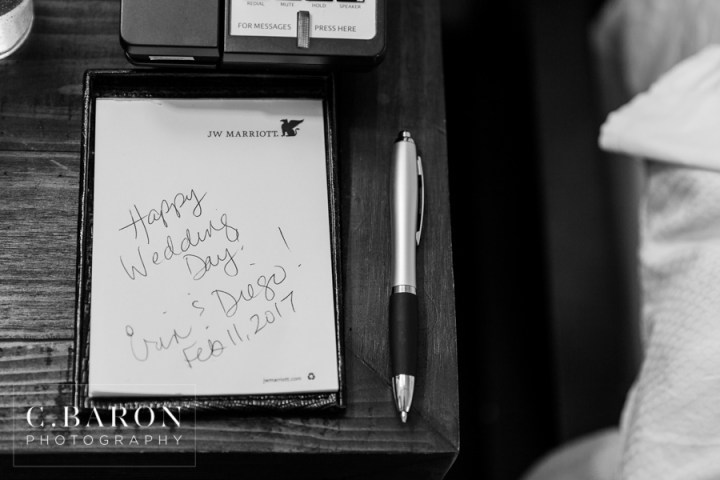 REDIAL MUTE HOLD SPEAKER
FOR MESSAGES PRESS HERE
JW MARRIOTT
Happy
Wedding
Day!
Erin & Diego
Feb 11, 2017
jwmarriott.com
C. BARON
PHOTOGRAPHY